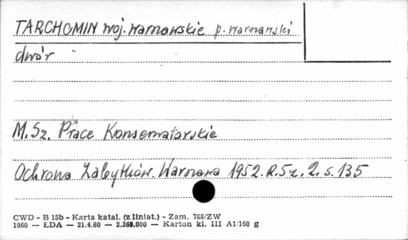 TARCHOMIN woj. warszawskie p. warszawski
dwór
M. Sz. Prace Konserwatorskie
Ochrona Zabytków. Warszawa 1952. R. 5 z. 2. s. 135
CWD - B 15b - Karta katal. (z liniat.) - Zam. 788/ZW
1060 — ŁDA — 21.4.60 — 2.360.000 — Karton kl. III A1/160 g